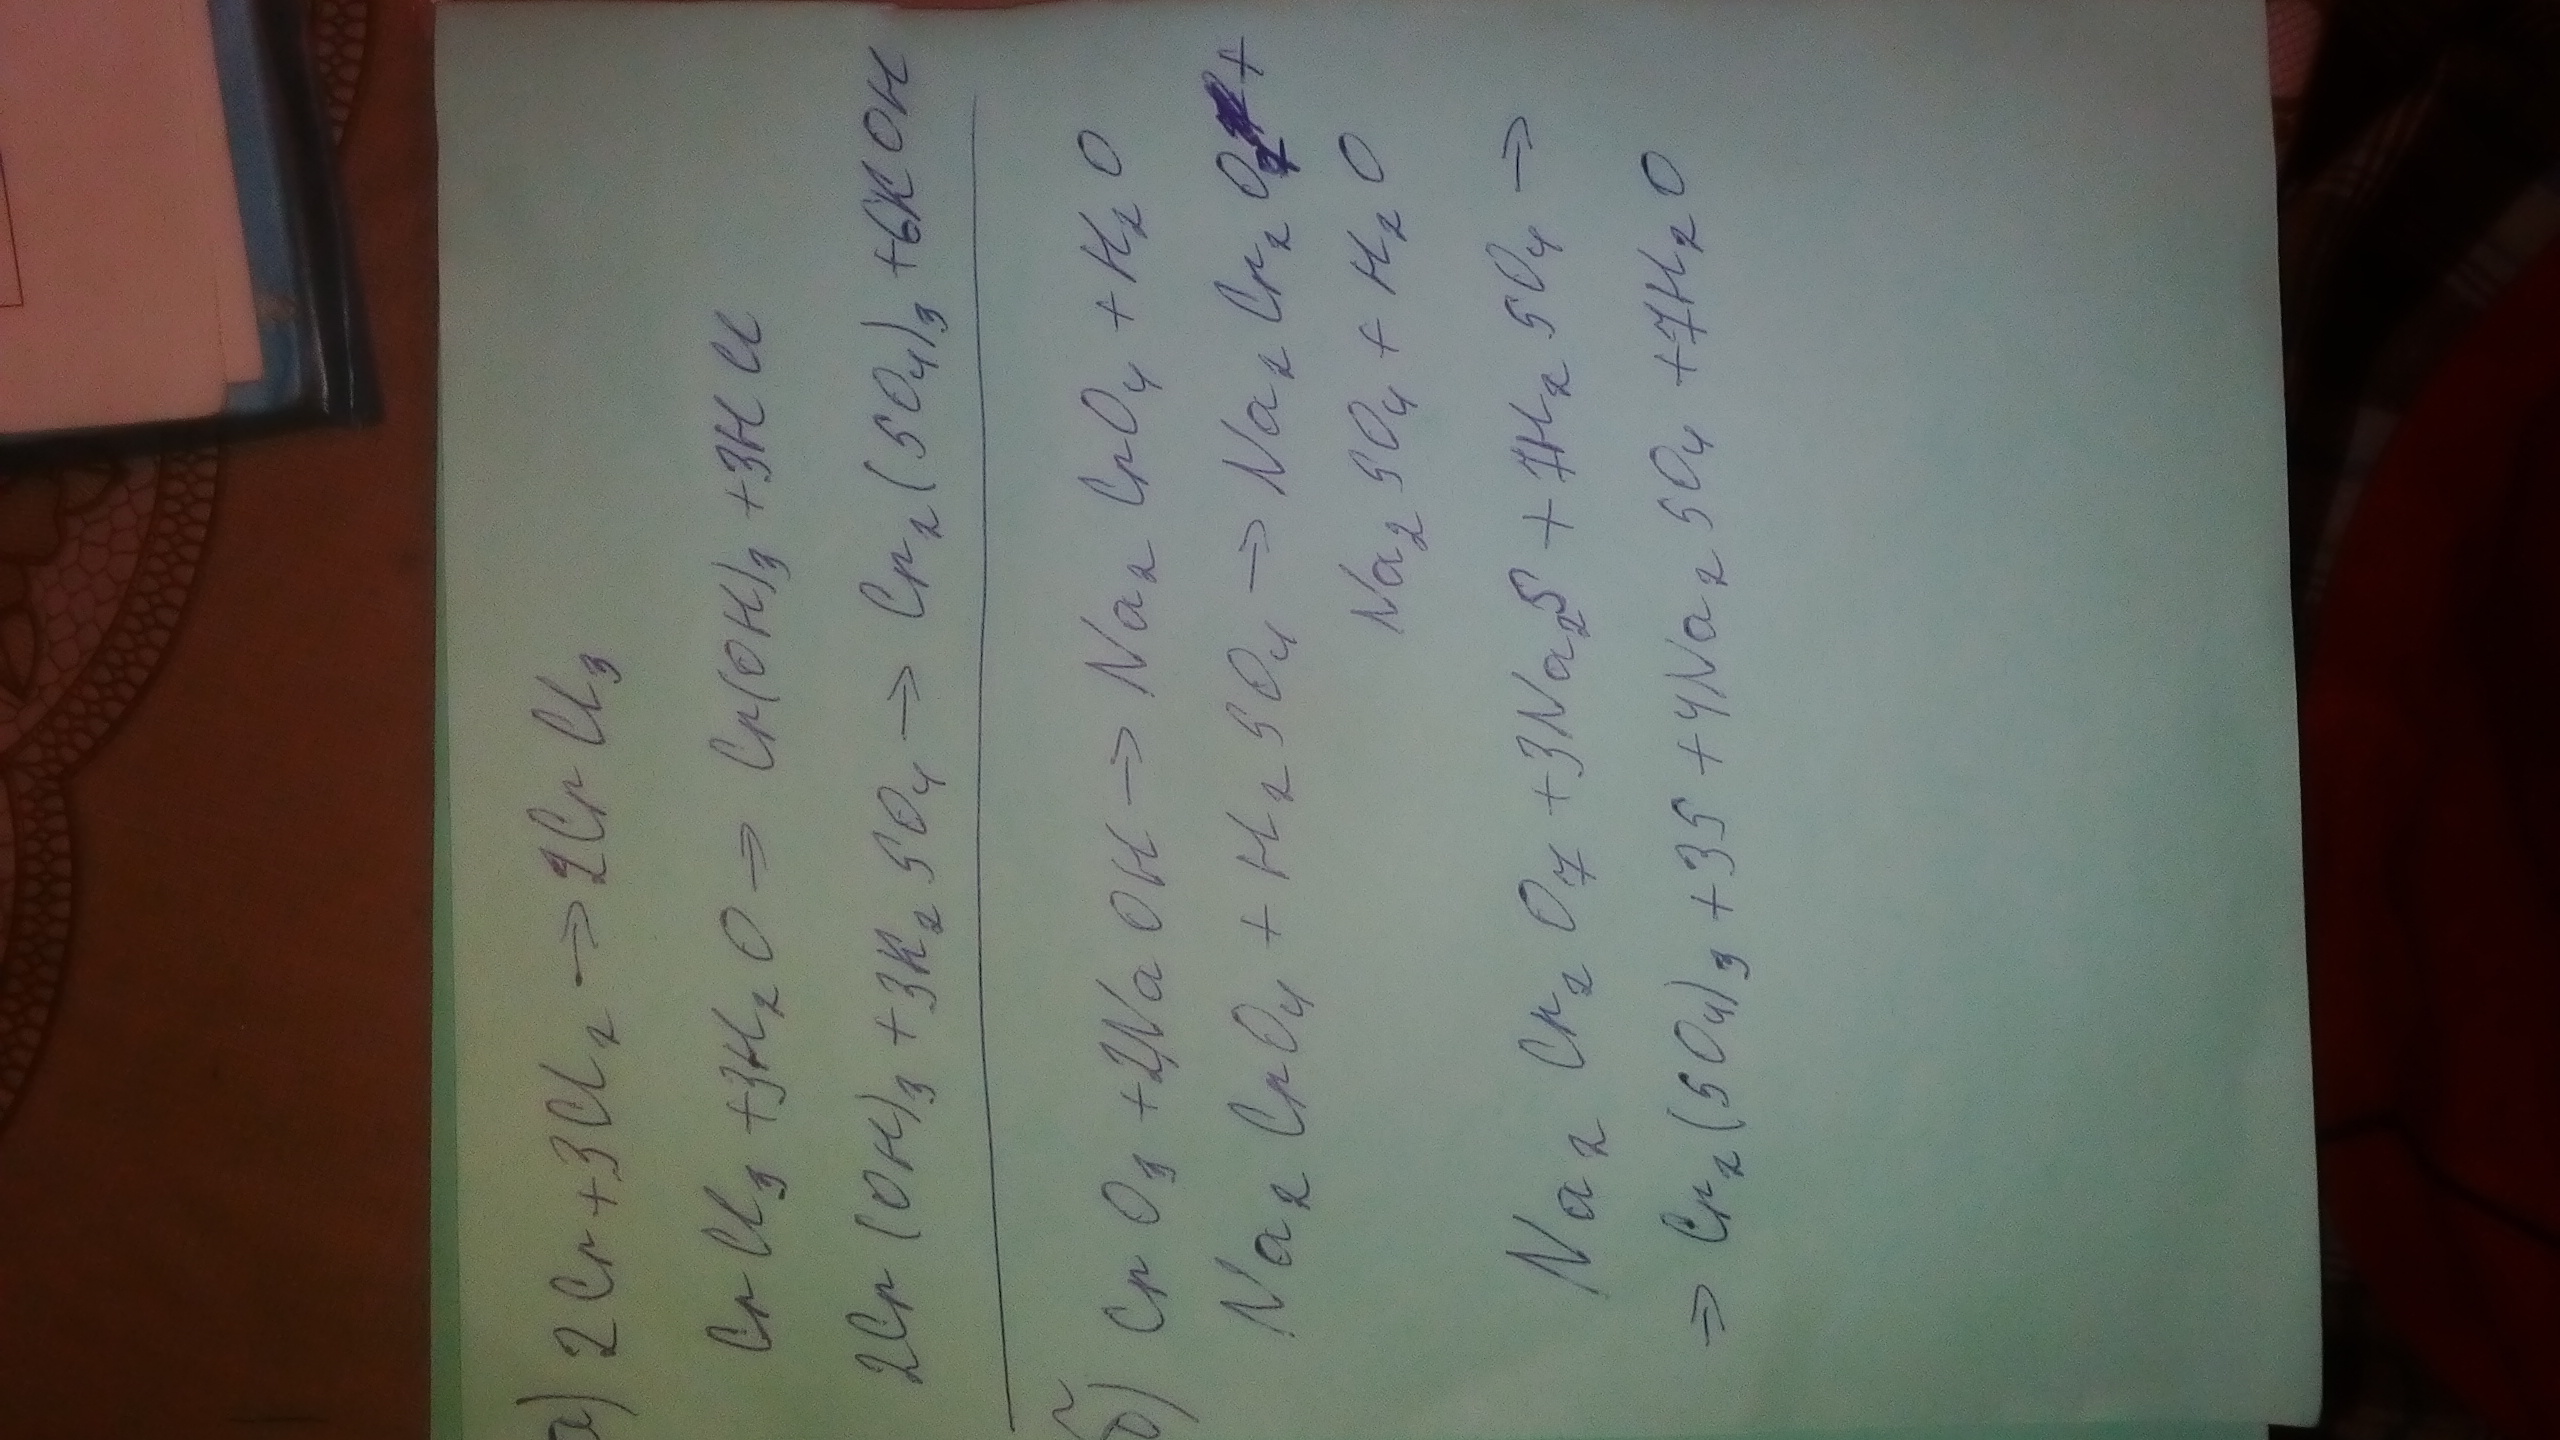 а) 2Cr+3Cl₂→2CrCl₃
CrCl₃+3H₂O→Cr(OH)₃+3HCl
2Cr(OH)₃+3K₂SO₄→Cr₂(SO₄)₃+6KOH
б) CrO₃+2NaOH→Na₂CrO₄+H₂O
Na₂CrO₄+H₂SO₄→Na₂Cr₂O₇+
Na₂SO₄+H₂O
Na₂Cr₂O₇+3Na₂S+7H₂SO₄→
→Cr₂(SO₄)₃+3S+4Na₂SO₄+7H₂O